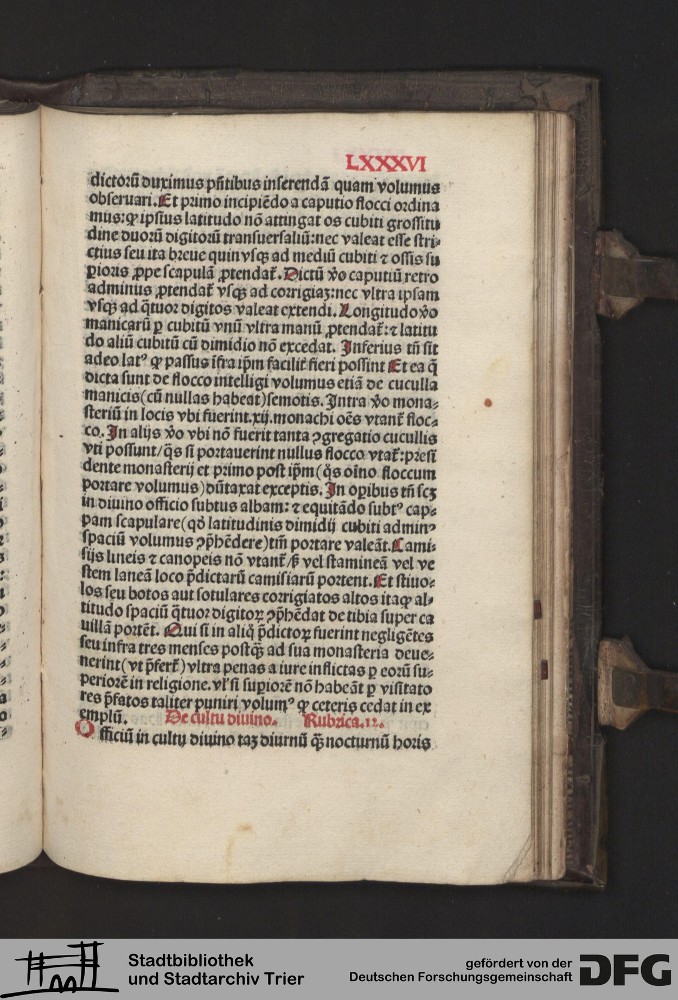 LXXXVI
dictorū duximus pñtibus inserendā quam volumus
obseruari. Et primo incipiēdo a caputio flocci ordina
mus: ꝙ ipsius latitudo nō attingat os cubiti grossitu
dine duorū digitorū transuersaliū: nec valeat esse stri⸗
ctius seu ita breue quin vsqꝫ ad mediū cubiti ⁊ ossis su
ꝑioris ꝓpe scapulā ꝓtendat᷑. Dictū ꝟo caputiū retro
adminus ꝓtendat᷑ vsqꝫ ad corrigiaꝫ: nec vltra ipsam
vsqꝫ ad q̈tuor digitos valeat extendi. Longitudo ꝟo
manicarū ꝑ cubitū vnū vltra manū ꝓtendat᷑: ⁊ latitu
do aliū cubitū cū dimidio nō excedat. Inferius tñ sit
adeo latꝰ ꝙ passus īfra ip̄m facilit᷑ fieri possint Et ea q̄
dicta sunt de flocco intelligi volumus etiā de cuculla
manicis (cū nullas habeat) semotis. Intra ꝟo mona⸗
steriū in locis vbi fuerint .xij. monachi oēs vtant᷑ floc⸗
co. In alijs ꝟo vbi nō fuerit tanta ꝯgregatio cucullis
vti possunt/ q̄s si portauerint nullus flocco vtat᷑: presi
dente monasterij et primo post ip̄m (q̄s oīno floccum
portare volumus) dūtaxat exceptis. In oꝑibus tñ scꝫ
in diuino officio subtus albam: ⁊ equitādo subtꝰ cap⸗
pam scapulare (qď latitudinis dimidij cubiti adminꝰ
spaciū volumus ꝯp̄hēdere) tm̄ portare valeāt. Cami⸗
sijs lineis ⁊ canopeis nō vtant᷑/ ß vel stamineā vel ve
stem laneā loco p̄dictarū camisiarū portent. Et stiuo⸗
los seu botos aut sotulares corrigiatos altos itaꝙ al⸗
titudo spaciū q̈tuor digitoꝝ ꝯp̄hēdat de tibia super ca
uillā portēt. Qui si in aliq̊ p̄dictoꝝ fuerint negligētes
seu infra tres menses postq̄ꝫ ad sua monasteria deue⸗
nerint (vt p̄fert᷑) vltra penas a iure inflictas ꝑ eorū su⸗
periorē in religione. vl̓ si suꝑiorē nō habeāt ꝑ visitato
res p̄fatos taliter puniri volumꝰ ꝙ ceteris cedat in ex
emplū. De cultu diuino. Rubrica .12.
Officiū in cultu diuino taꝫ diurnū q̄ꝫ nocturnū horis
Stadtbibliothek
und Stadtarchiv Trier
gefördert von der
Deutschen Forschungsgemeinschaft
DFG